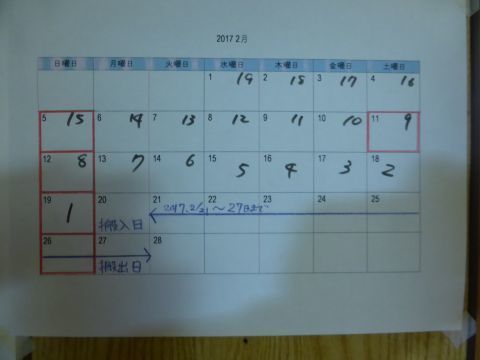 2017 2月
日曜日 月曜日 火曜日 水曜日 木曜日 金曜日 土曜日
1 19 2 18 3 17 4 16
5 15 6 14 7 13 8 12 9 11 10 10 11 9
12 8 13 7 14 6 15 5 16 4 17 3 18 2
19 1 20 21 22 23 24 25
2017.2/21〜27日まで
搬入日
26 27 28
搬出日